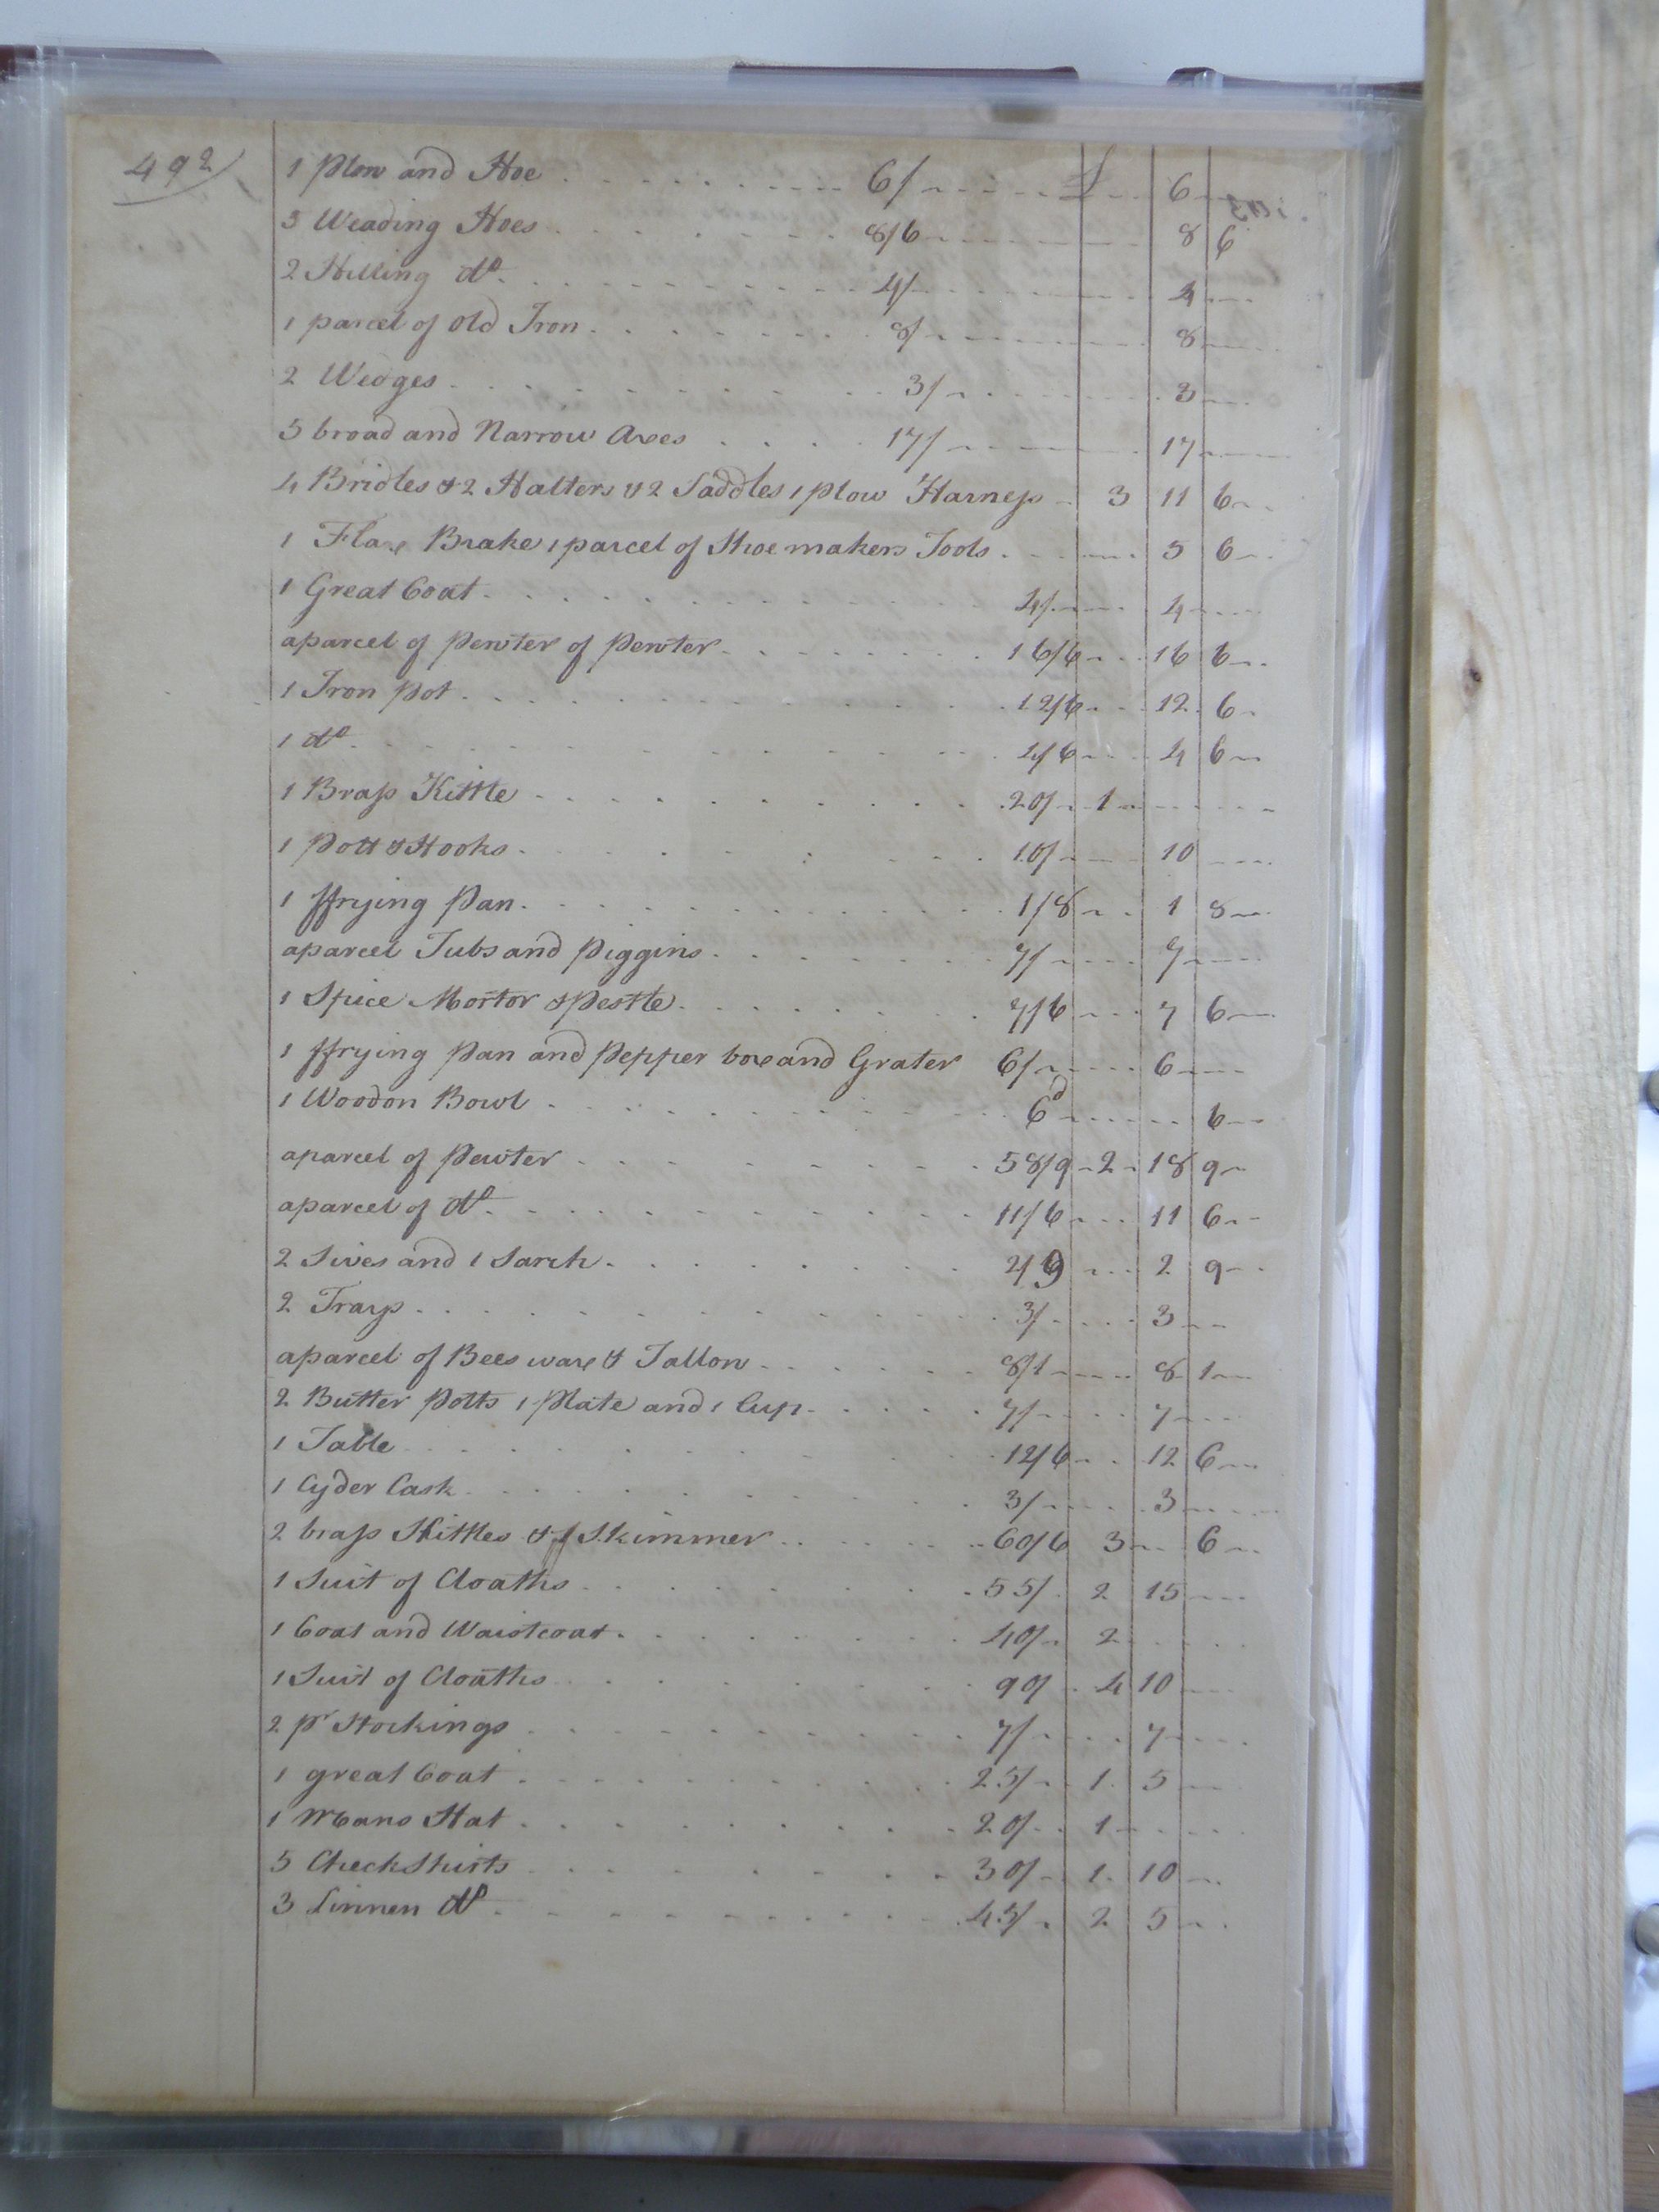 492
1 Plow and Hoe 6/ £ 6
3 Weading Hoes 8/6 8 6
2 Hilling do 4/ 4
1 parcel of Old Iron 8/ 8
2 Wedges 3/ 3
5 broad and Narrow Axes 17/ 17
4 Bridles & 2 Halters & 2 Saddles 1 plow Harness 3 11 6
1 Flax Brake 1 parcel of Shoemakers Tools 5 6
1 Great Coat 4/ 4
aparcel of Pewter of Pewter 16/6 16 6
1 Iron pot 12/6 12 6
1 do 4/6 4 6
1 Brass Kittle 20/ 1
1 Pott & Hooks 10/ 10
1 ffrying Pan 1/8 1 8
aparcel Tubs and Piggins 7/ 7
1 Spice Mortor & Pestle 7/6 7 6
1 ffrying Pan and Pepper box and Grater 6/ 6
1 Woodon Bowl 6d 6
aparcel of Pewter 58/9 2 18 9
aparcel of do 11/6 11 6
2 Sives and 1 Sarch 2/9 2 9
2 Trays 3/ 3
aparcel of Bees wax & Tallow 8/1 8 1
2 Butter Potts 1 Plate and 1 Cup 7/ 7
1 Table 12/6 12 6
1 Cyder Cask 3/ 3
2 brass Kittles & 1 Skimmer 60/6 3 6
1 Suit of Cloaths 55/ 2 15
1 Coat and Waistcoat 40/ 2
1 Suit of Cloaths 90/ 4 10
2 pr Stockings 7/ 7
1 great Coat 25/ 1 5
1 Mans Hat 20/ 1
5 Check Shirts 30/ 1 10
3 Linnen do 45/ 2 5